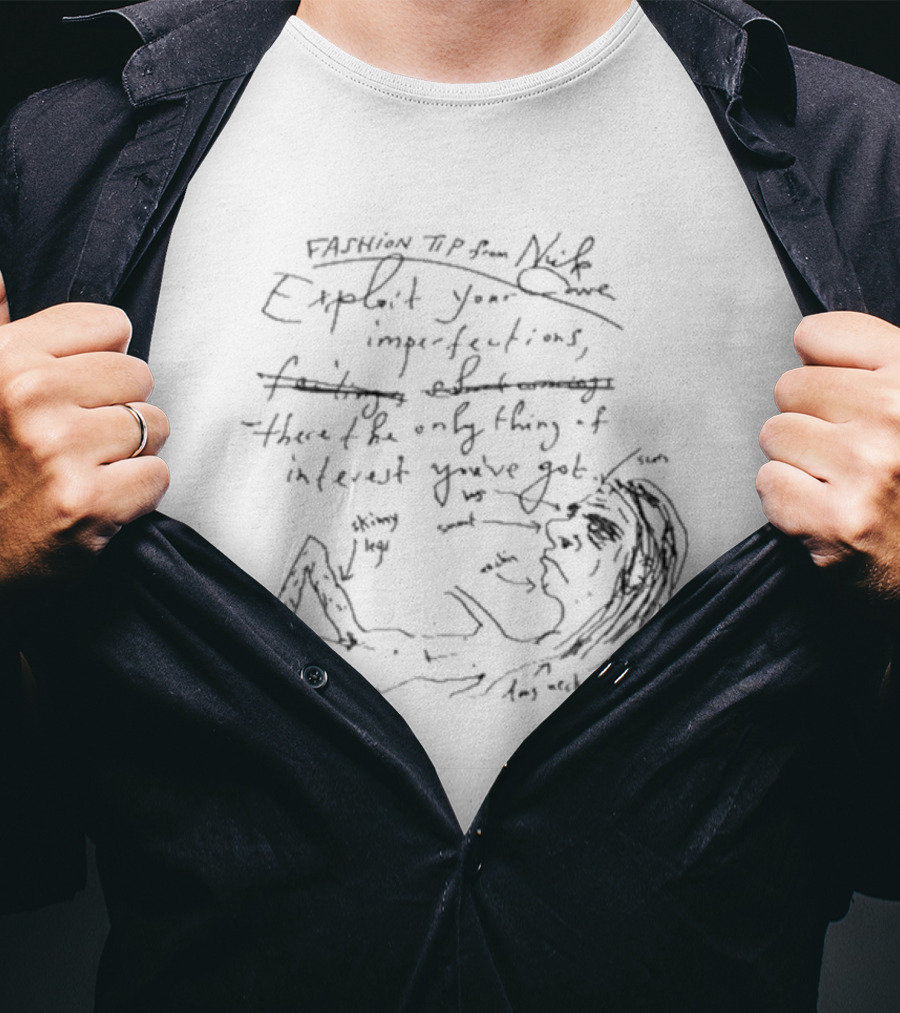 FASHION TIP from Nick Cave
Exploit your
imperfections,
failings shortcomings
- there the only thing of
interest you've got.
skinny
legs
long neck